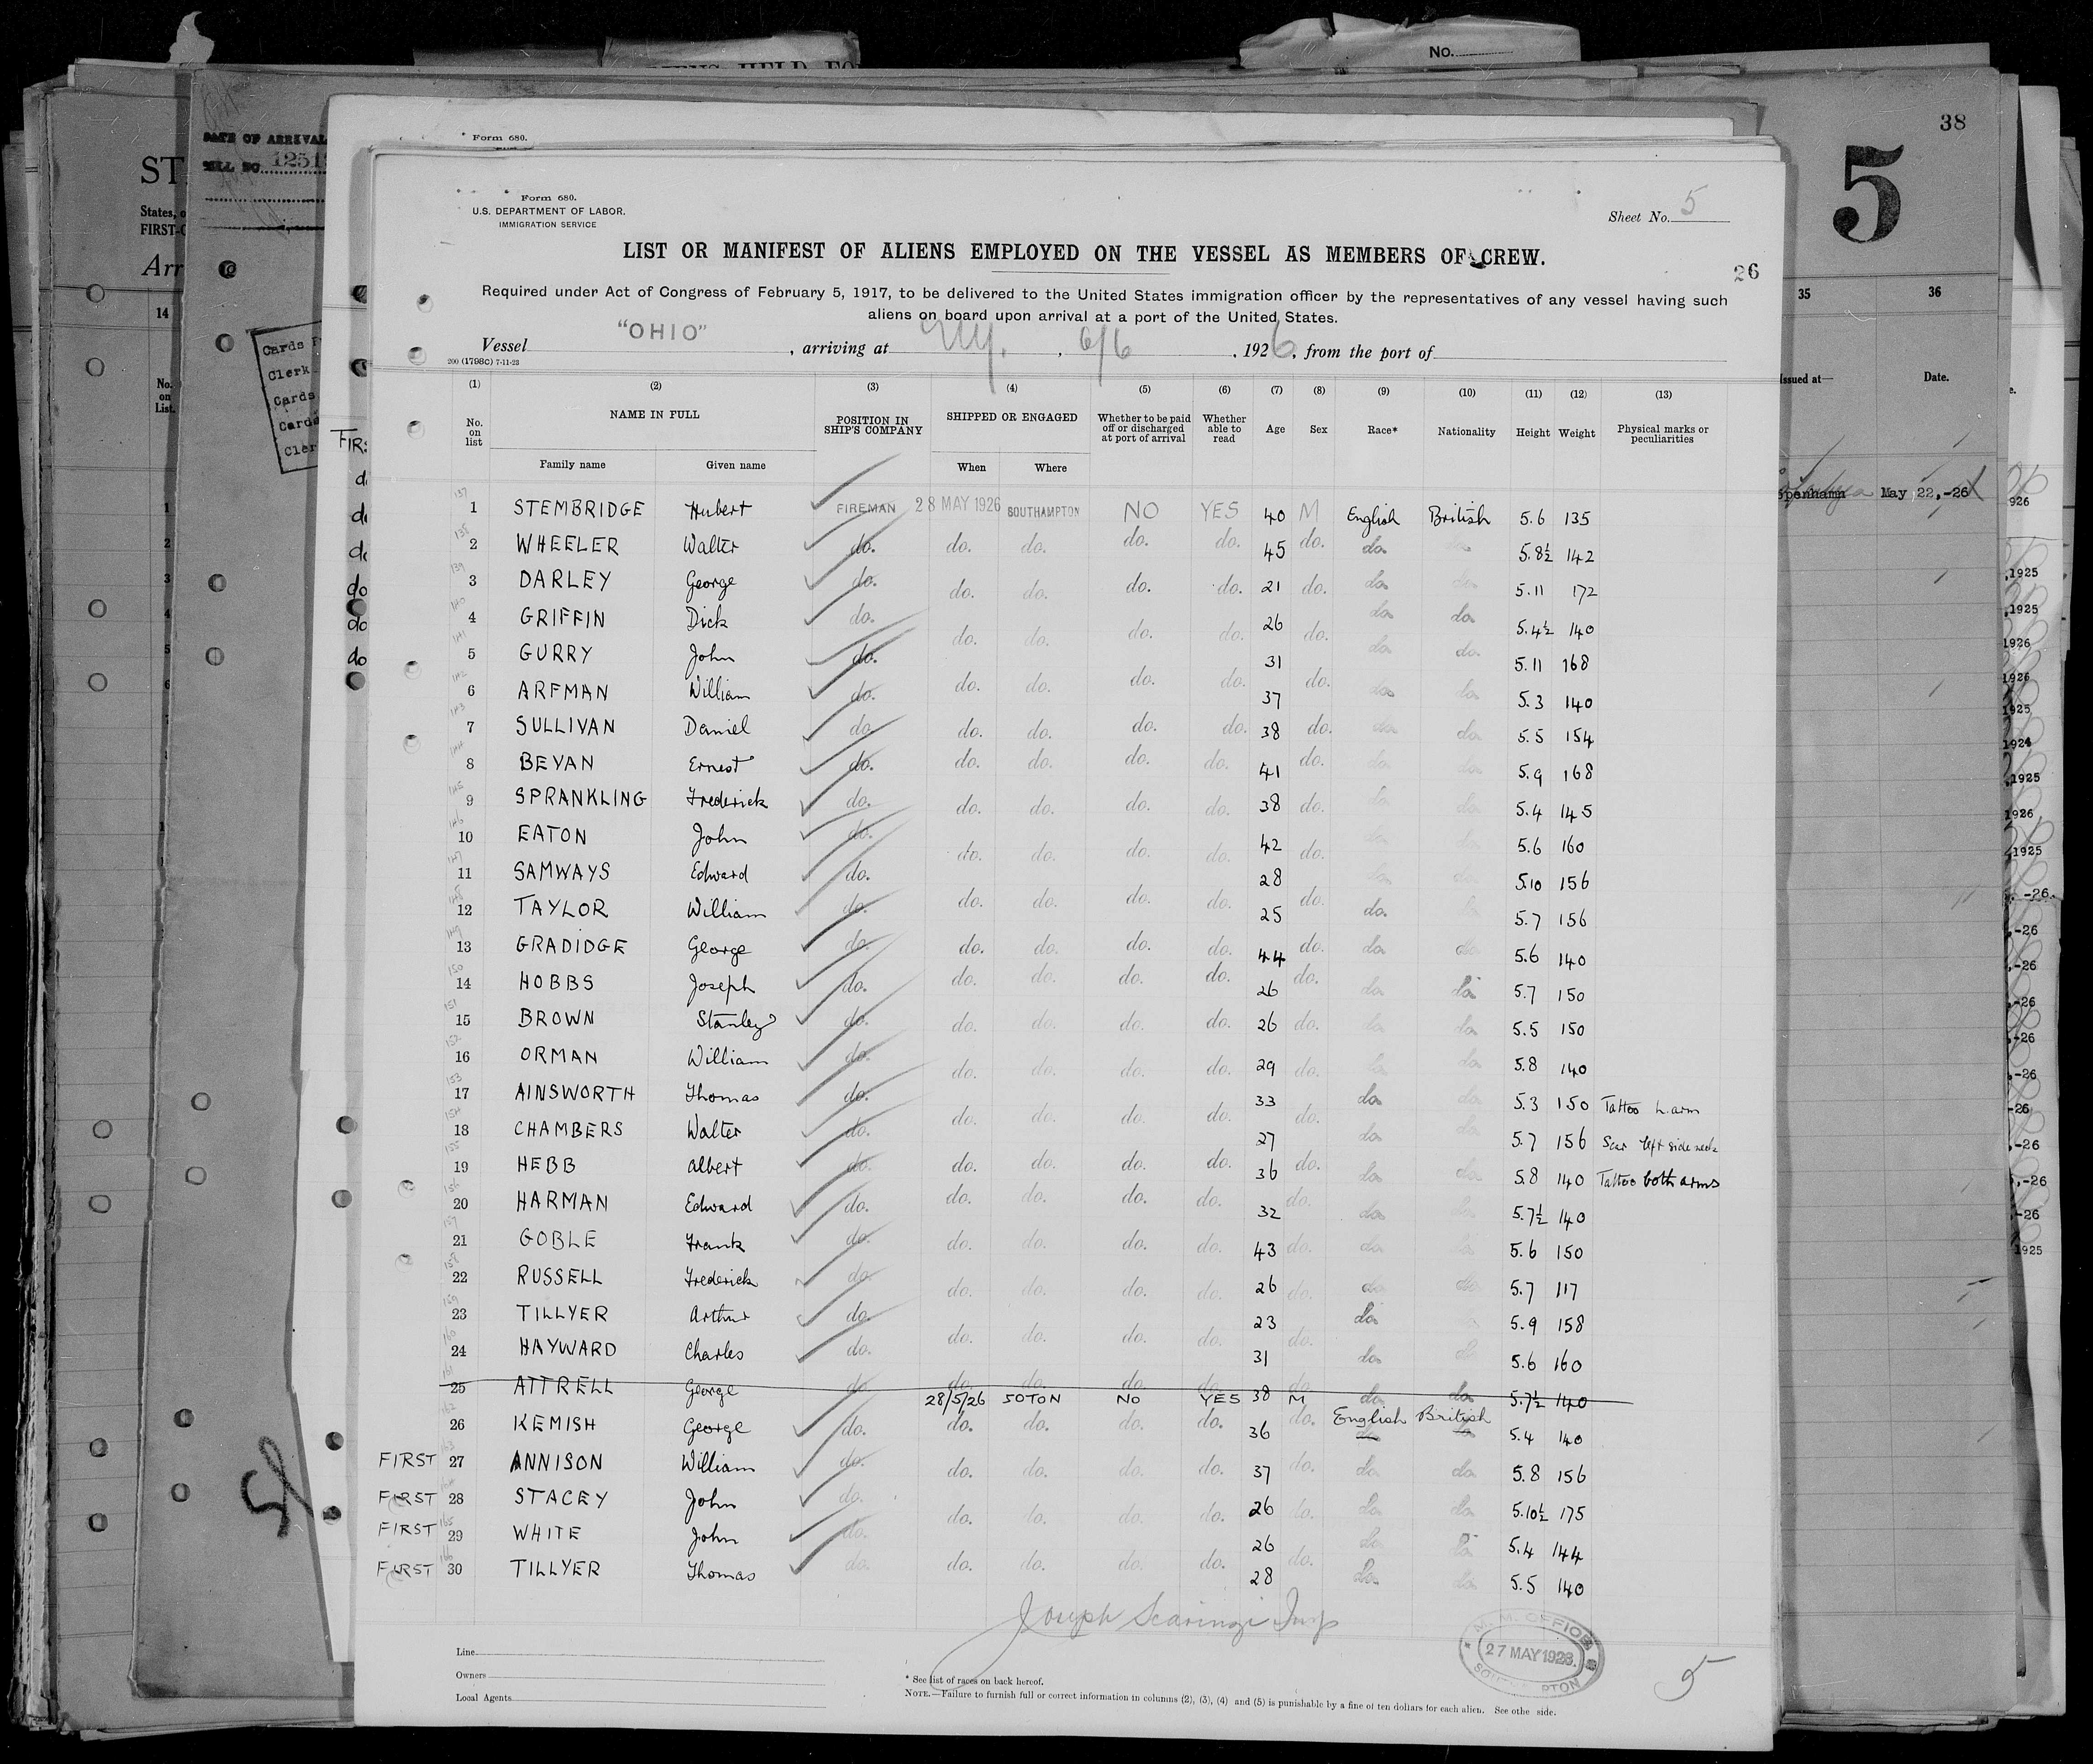 No.
38
5
Form 680.
DATE OF ARRIVAL
ST
States,
FIRST-
Arr
14
No.
on
List.
Cards
Clerk
Cards
Cards
Cler
FIRS
35
36
Issued at—
Date.
May 22,-26
Form 680.
U.S. DEPARTMENT OF LABOR.
IMMIGRATION SERVICE
Sheet No. 5
LIST OR MANIFEST OF ALIENS EMPLOYED ON THE VESSEL AS MEMBERS OF CREW.
26
Required under Act of Congress of February 5, 1917, to be delivered to the United States immigration officer by the representatives of any vessel having such
aliens on board upon arrival at a port of the United States.
Vessel "OHIO", arriving at N.Y., 6/6, 1926, from the port of
200 (1798C) 7-11-23
(1) (2) (3) (4) (5) (6) (7) (8) (9) (10) (11) (12) (13)
No. on list NAME IN FULL POSITION IN SHIP'S COMPANY SHIPPED OR ENGAGED Whether to be paid off or discharged at port of arrival Whether able to read Age Sex Race* Nationality Height Weight Physical marks or peculiarities
Family name Given name When Where
137 1 STEMBRIDGE Hubert FIREMAN 28 MAY 1926 SOUTHAMPTON NO YES 40 M English British 5.6 135
138 2 WHEELER Walter do. do. do. do. do. 45 do. do do 5.8½ 142
139 3 DARLEY George do. do. do. do. do. 21 do. do do 5.11 172
140 4 GRIFFIN Dick do. do. do. do. do. 26 do. do do 5.4½ 140
141 5 GURRY John do. do. do. do. do. 31 do. do do 5.11 168
142 6 ARFMAN William do. do. do. do. do. 37 do. do do 5.3 140
143 7 SULLIVAN Daniel do. do. do. do. do. 38 do. do do 5.5 154
144 8 BEVAN Ernest do. do. do. do. do. 41 do. do do 5.9 168
145 9 SPRANKLING Frederick do. do. do. do. do. 38 do. do do 5.4 145
146 10 EATON John do. do. do. do. do. 42 do. do do 5.6 160
147 11 SAMWAYS Edward do. do. do. do. do. 28 do. do do 5.10 156
148 12 TAYLOR William do. do. do. do. do. 25 do. do do 5.7 156
149 13 GRADIDGE George do. do. do. do. do. 44 do. do do 5.6 140
150 14 HOBBS Joseph do. do. do. do. do. 26 do. do do 5.7 150
151 15 BROWN Stanley do. do. do. do. do. 26 do. do do 5.5 150
152 16 ORMAN William do. do. do. do. do. 29 do. do do 5.8 140
153 17 AINSWORTH Thomas do. do. do. do. do. 33 do. do do 5.3 150 Tattoo L. arm
154 18 CHAMBERS Walter do. do. do. do. do. 27 do. do do 5.7 156 Scar left side neck
155 19 HEBB Albert do. do. do. do. do. 36 do. do do 5.8 140 Tattoo both arms
156 20 HARMAN Edward do. do. do. do. do. 32 do. do do 5.7½ 140
157 21 GOBLE Frank do. do. do. do. do. 43 do. do do 5.6 150
158 22 RUSSELL Frederick do. do. do. do. do. 26 do. do do 5.7 117
159 23 TILLYER Arthur do. do. do. do. do. 23 do. do do 5.9 158
160 24 HAYWARD Charles do. do. do. do. do. 31 do. do do 5.6 160
161 25 ATTRELL George do. do. do. do. do. 38 do. do do 5.7½ 140
28/5/26 SOTON NO YES M English British
162 26 KEMISH George do. do. do. do. do. 36 do. do do 5.4 140
FIRST 163 27 ANNISON William do. do. do. do. do. 37 do. do do 5.8 156
FIRST 164 28 STACEY John do. do. do. do. do. 26 do. do do 5.10½ 175
FIRST 165 29 WHITE John do. do. do. do. do. 26 do. do do 5.4 144
FIRST 166 30 TILLYER Thomas do. do. do. do. do. 28 do. do do 5.5 140
Joseph Scaringi Insp
Line
Owners
Local Agents
* See list of races on back hereof.
NOTE.—Failure to furnish full or correct information in columns (2), (3), (4) and (5) is punishable by a fine of ten dollars for each alien. See othe side.
M. M. OFFICE
27 MAY 1926
SOUTHAMPTON
5